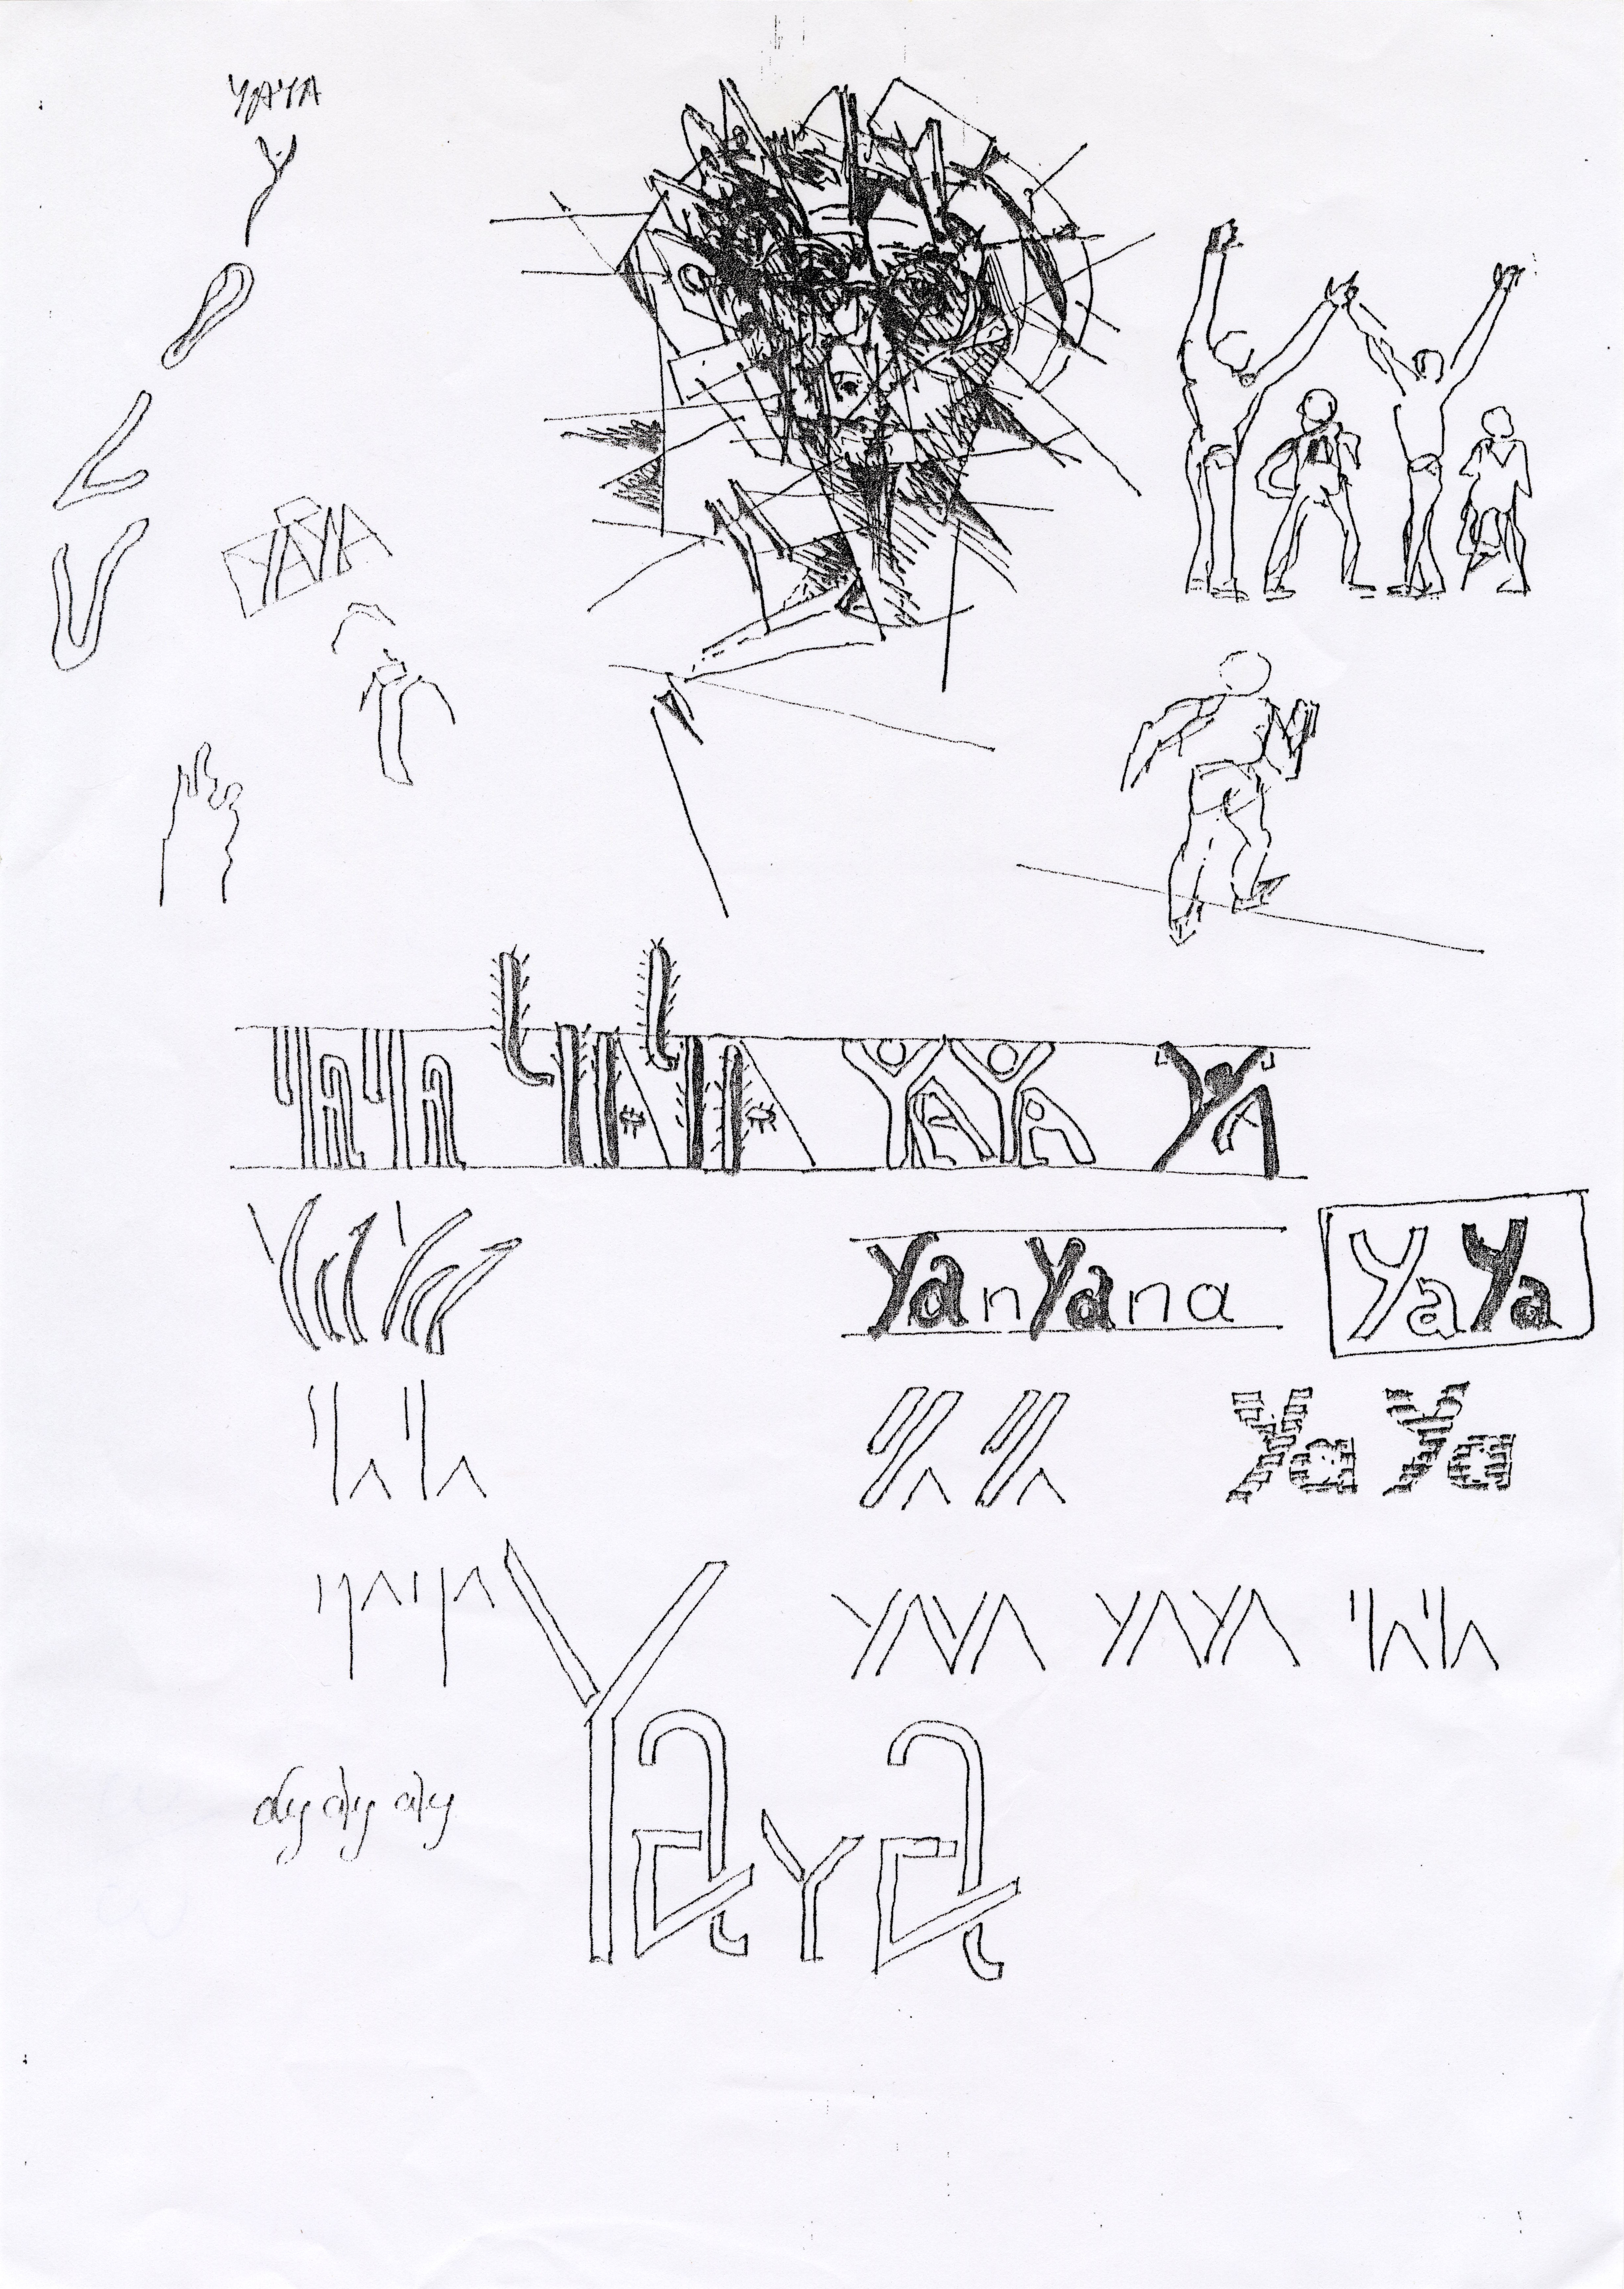 YAYA
YAYA
YaYa YAYA YAYA YA
YaYa YanYana YaYa
YA YA YA YA Ya Ya
YAYA YAYA YAYA YAYA
Yaya